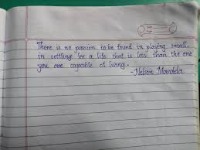 There is no passion to be found in playing small,
in settling for a life that is less than the one
you are capable of living.
-Nelson Mandela